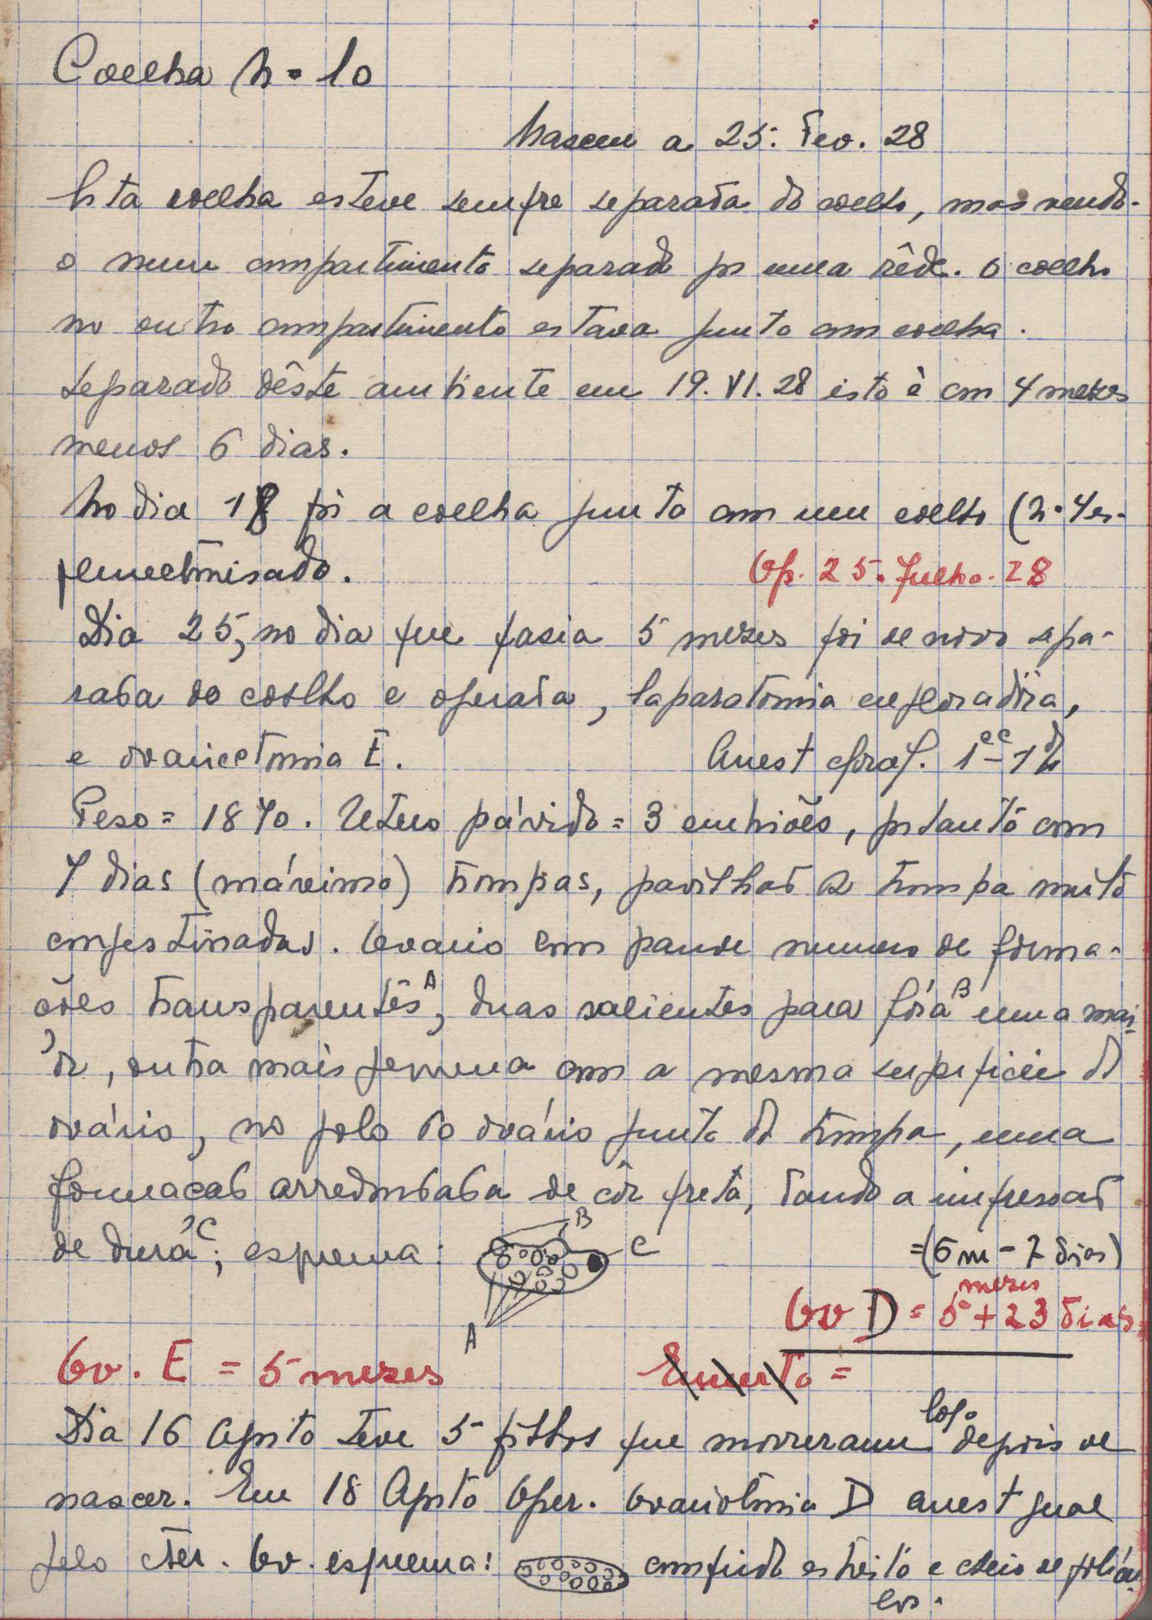 Coelha n.º 10
Nasceu a 25. Fev. 28
Esta coelha esteve sempre separada do coelho, mas vendo-
o num compartimento separado por uma rêde. O coelho
no outro compartimento estava junto com coelha.
Separado dêste ambiente em 19. VI. 28 isto è com 4 mezes
menos 6 dias.
No dia 18 foi a coelha junta com um coelho (n.º 4 es-
plenectomisado.
Op. 25. Julho. 28
Dia 25, no dia que fasia 5 mezes foi de novo sepa-
rada do coelho e operada, laparatomia exploradôra,
e ovariectomia E.
Anest chloraf. 1cc - 1 ½
Peso = 1870. Utero grávido = 3 embriões, portanto com
7 dias (máximo) trompas, pavilhão da trompa muito
congestionadas. Ovario com grande numero de forma-
ções transparentes A, duas salientes para fóra B uma mai-
ór, outra mais pequena com a mesma superficie do
ovário, no polo do ovário junto da trompa, uma
formação arredondada de côr preta, dando a impressão
de dura C; esquema:
B
C
A
= (6 m - 7 dias)
mezes
Ov D = 5 + 23 dias.
Ov. E = 5 mezes
=
Dia 16 Agosto teve 5 filhos que morreram logo depois de
nascer. Em 18 Agosto Oper. Ovariotomia D anest geral
pelo eter. Ov. esquema: comprido estreito e cheio de folicu-
los.